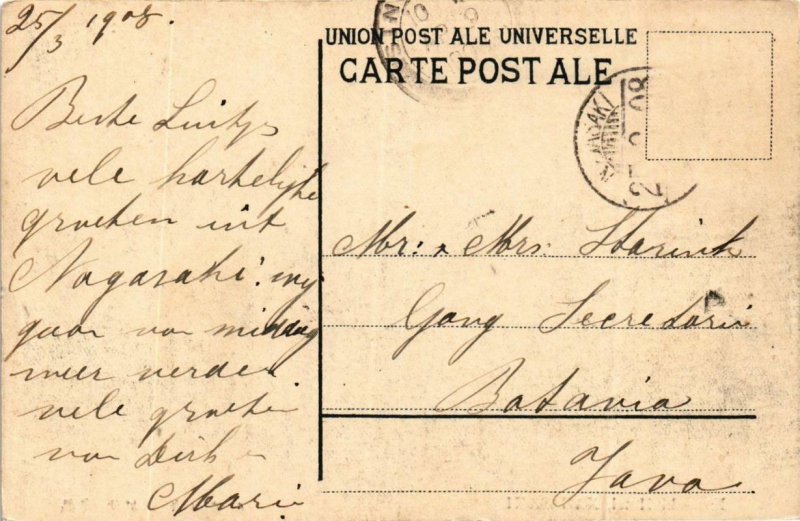 25/3 1908.
UNION POSTALE UNIVERSELLE
CARTE POSTALE
NAGASAKI
Beste Luitjes
vele hartelijke
groeten uit
Nagasaki. wy
gaan van middag
weer verder
vele groeten
van Dirk en
Marie
Mr: & Mrs. Starink
Gang Secretarie
Batavia
Java